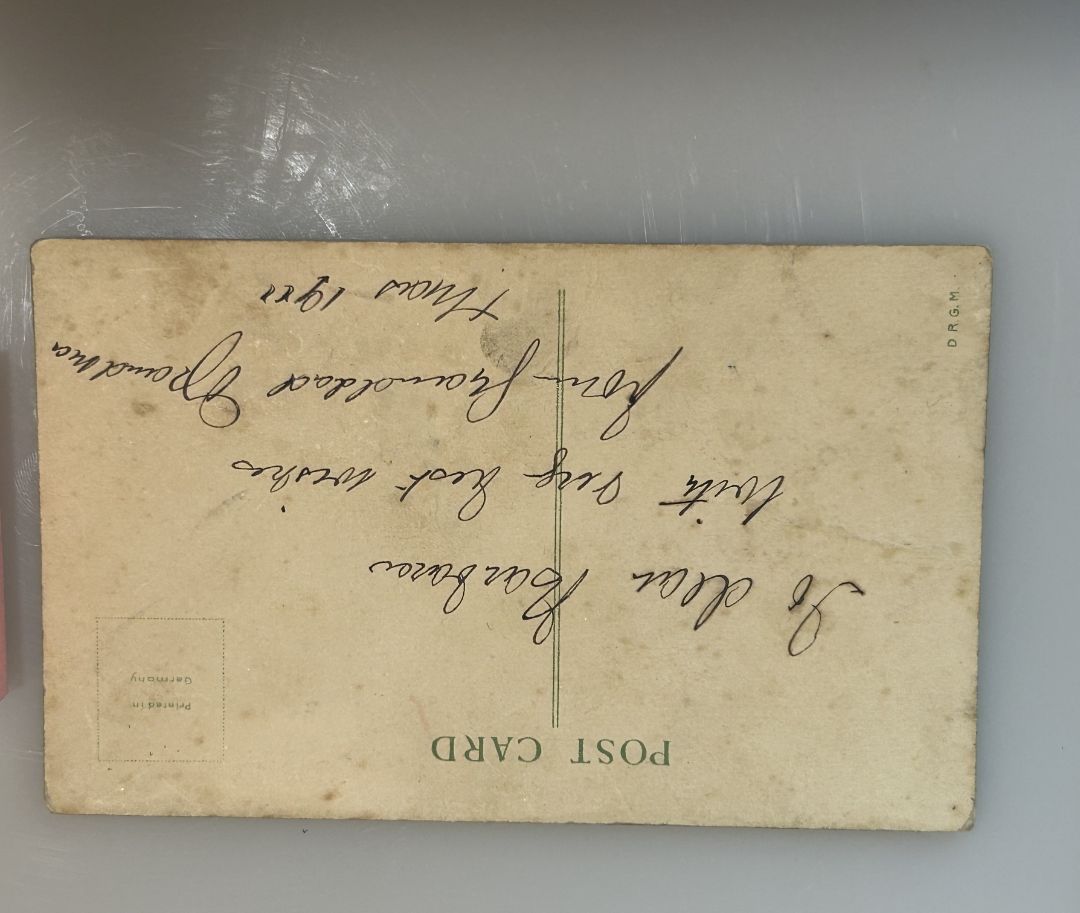 POST CARD
Printed in
Germany
To dear Barbara
With very best wishes
from Granddad Grandma
Xmas
D.R.G.M.